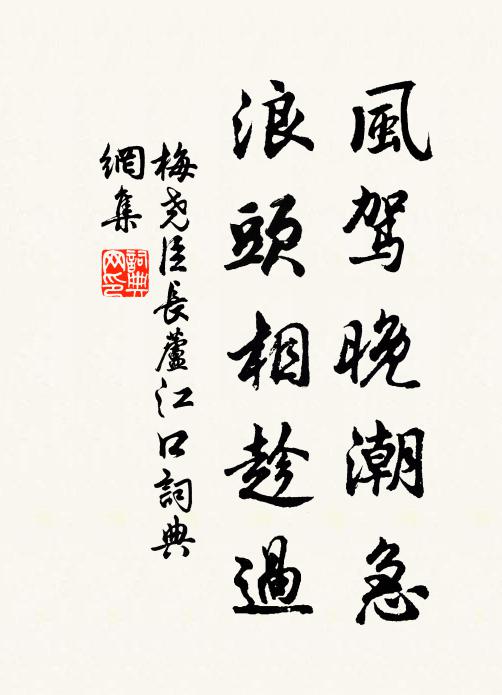 風駕晚潮急
浪頭相趁過
梅堯臣長蘆江口詞典
網集
詞典
网印